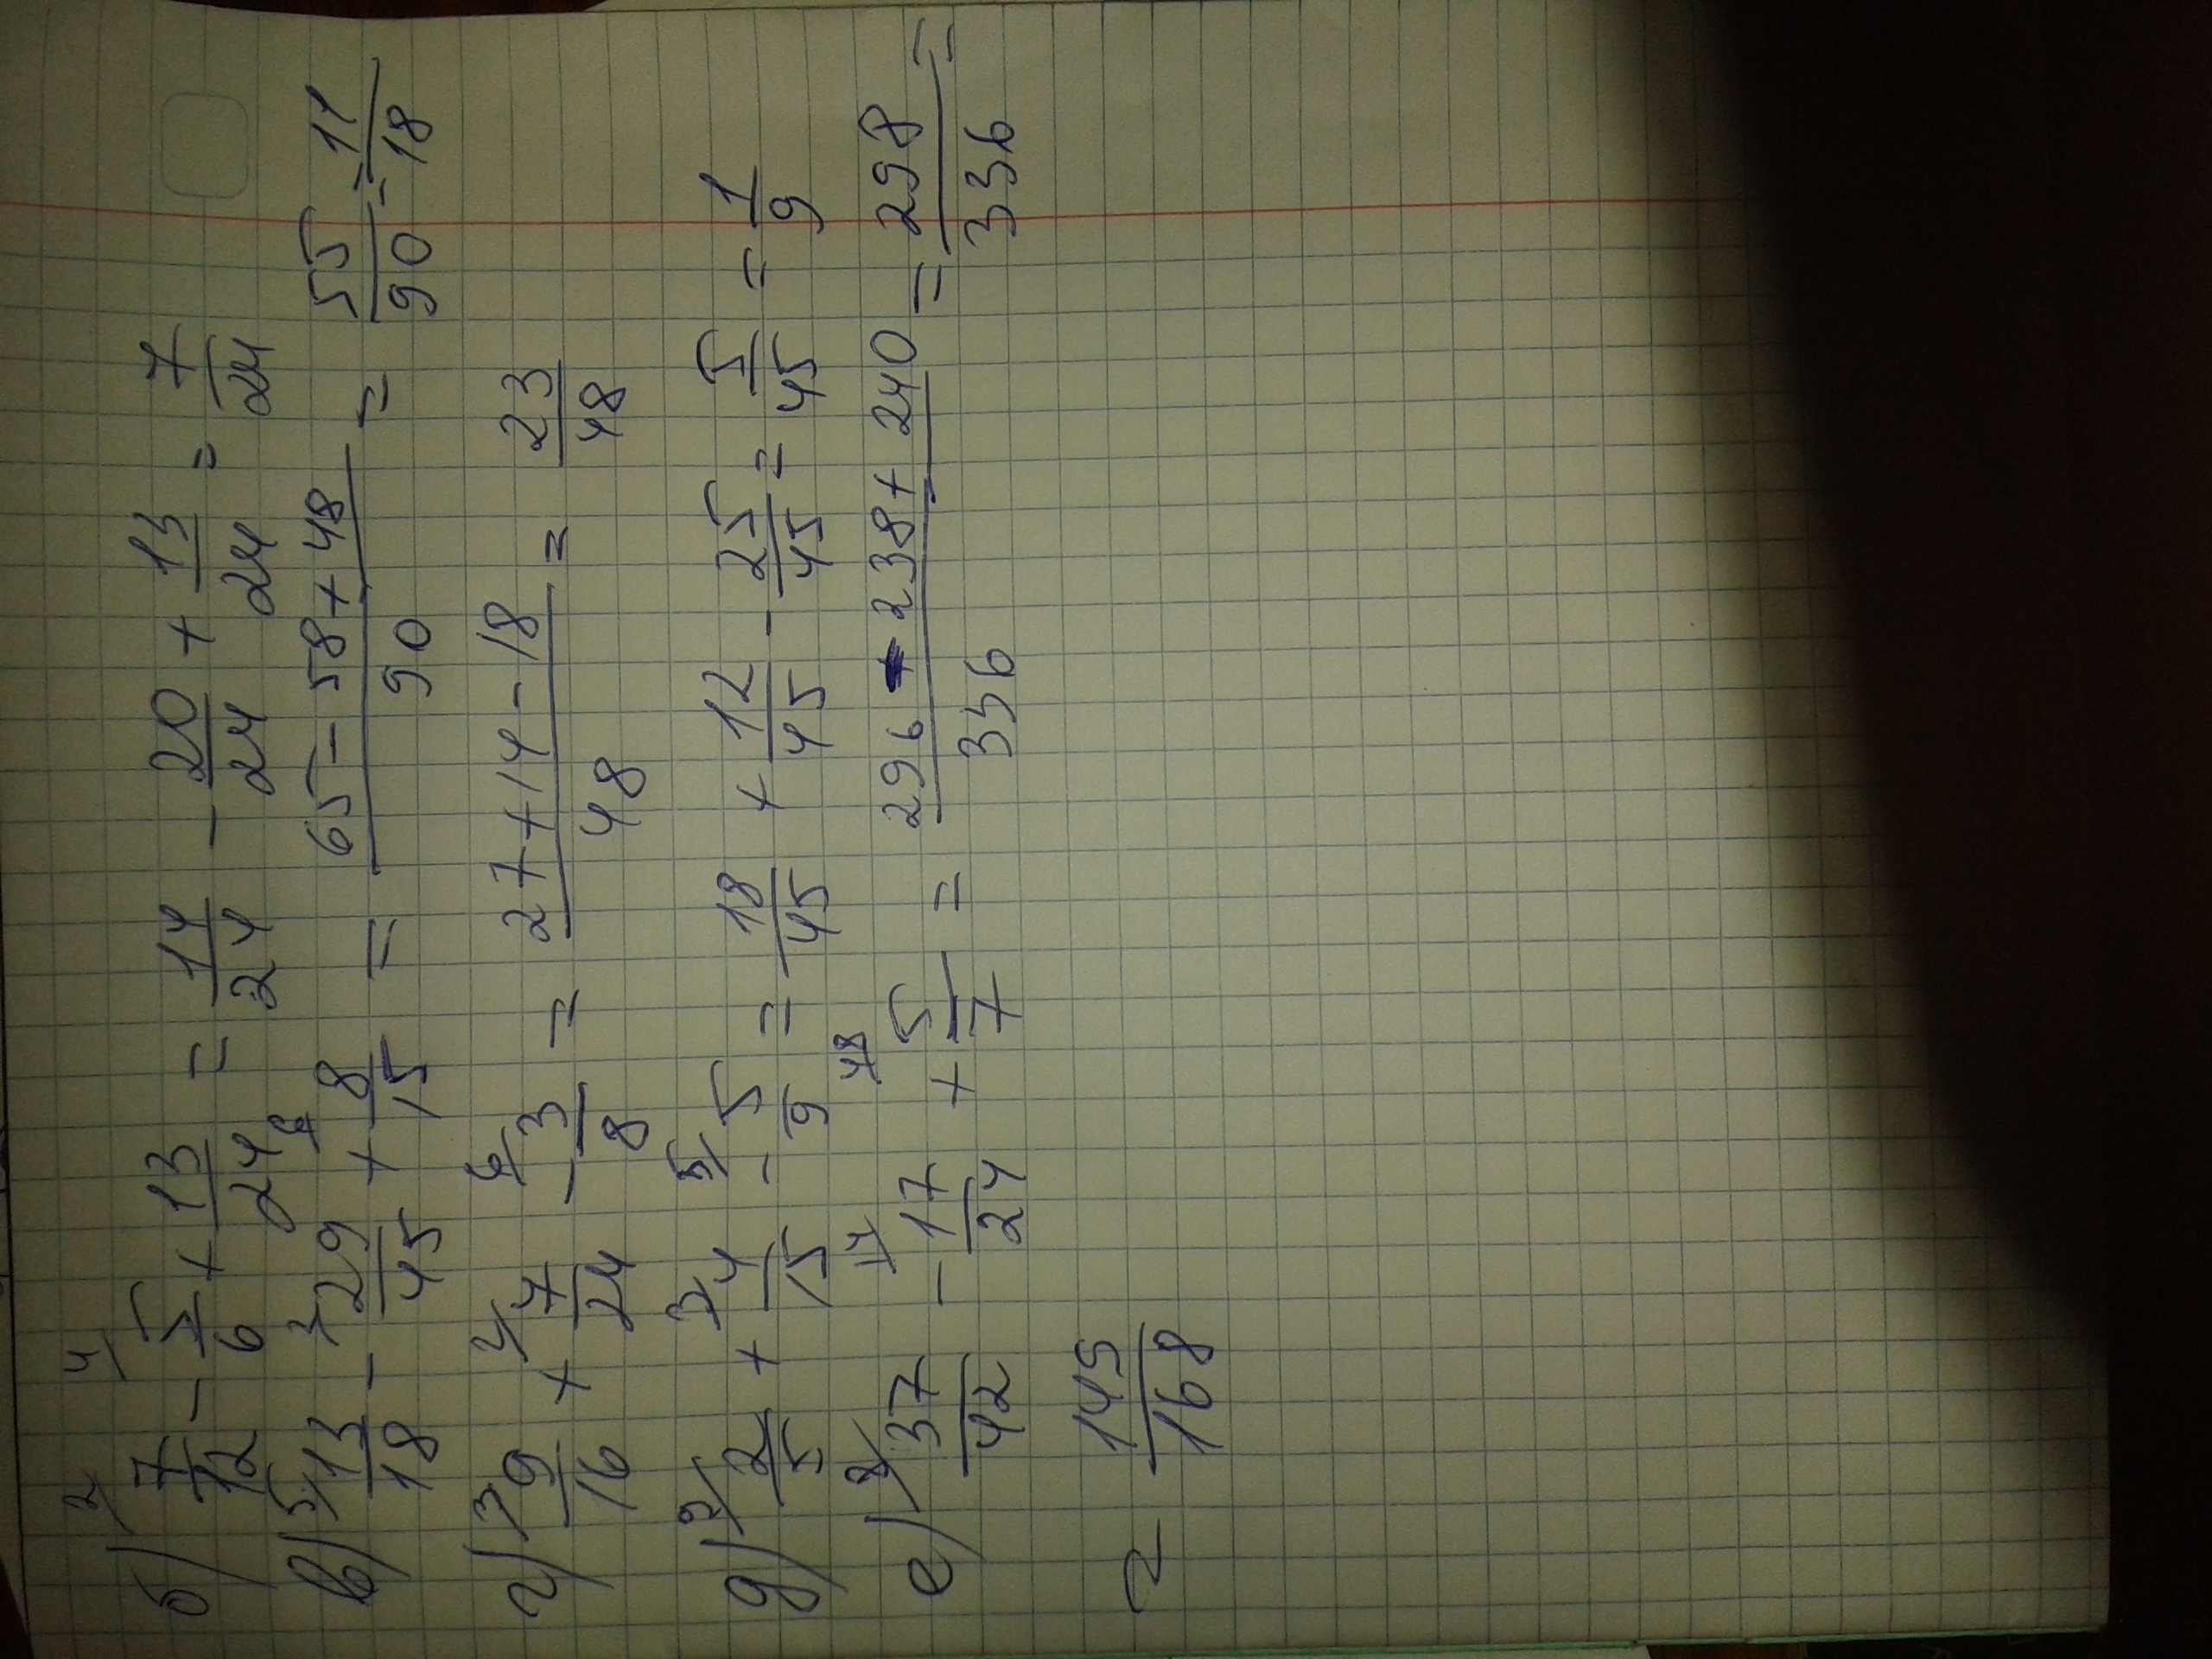 б) 2/ 7/12 - 4/ 5/6 + 13/24 = 14/24 - 20/24 + 13/24 = 7/24
в) 5/ 13/18 - 2/ 29/45 + 6/ 8/15 = 65-58+48/90 = 55/90 = 11/18
г) 3/ 9/16 + 2/ 7/24 - 6/ 3/8 = 27+14-18/48 = 23/48
д) 9/ 2/5 + 3/ 4/15 - 5/ 5/9 = 18/45 + 12/45 - 25/45 = 5/45 = 1/9
е) 8/ 37/42 - 14/ 17/24 + 48/ 5/7 = 296 - 238 + 240/336 = 298/336 =
= 145/168